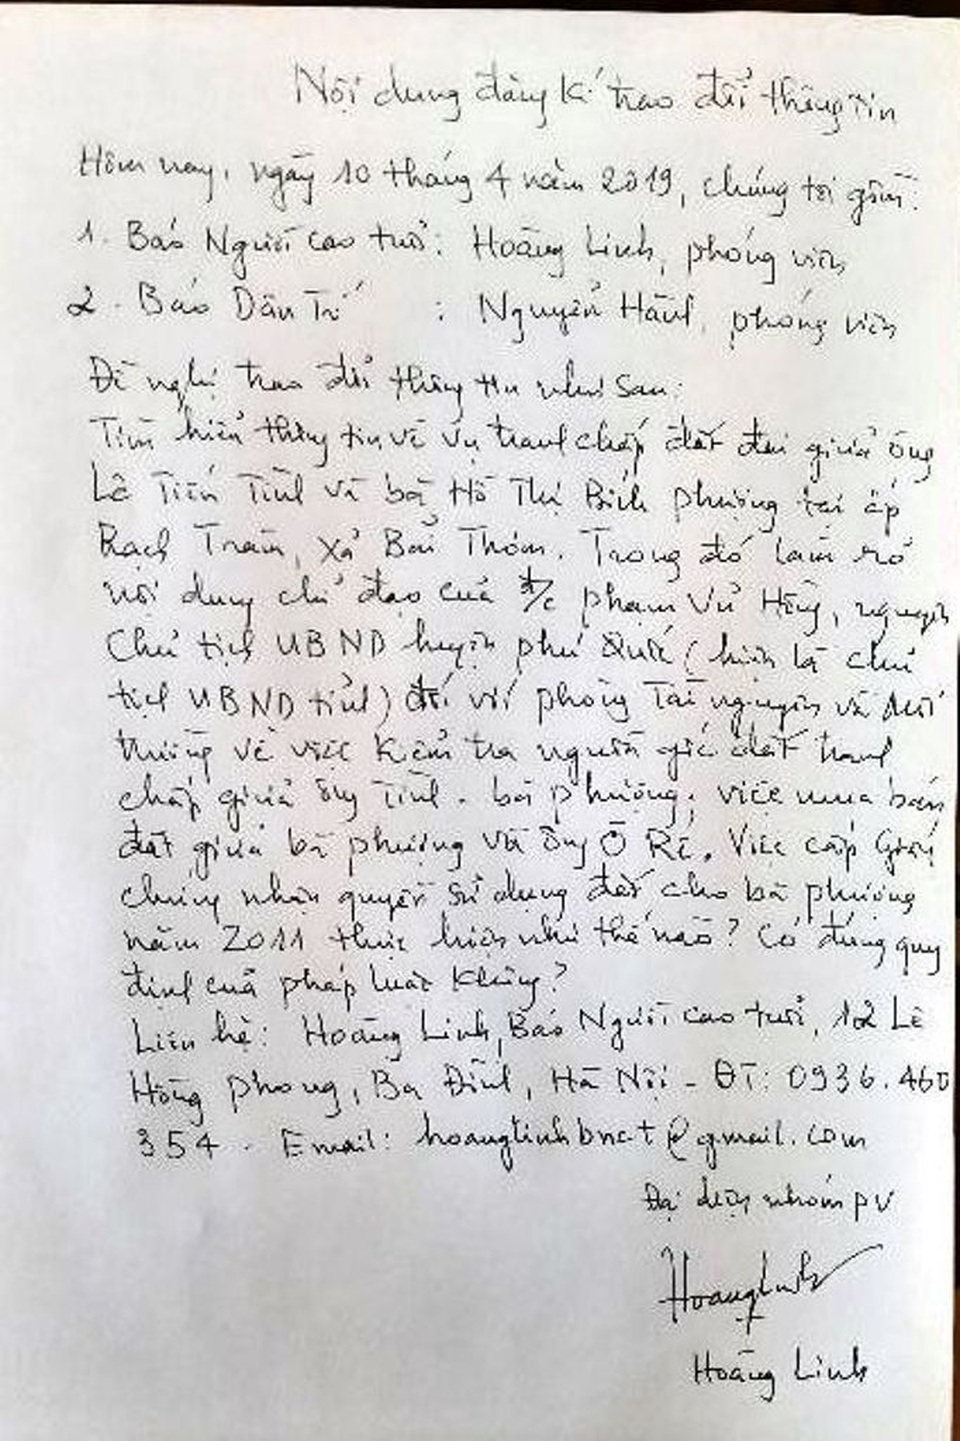 Nội dung đăng kí trao đổi thông tin
Hôm nay, ngày 10 tháng 4 năm 2019, chúng tôi gồm:
1. Báo Người cao tuổi: Hoàng Linh, phóng viên
2. Báo Dân Trí : Nguyễn Hành, phóng viên
Đề nghị trao đổi thông tin như sau:
Tìm hiểu thông tin về vụ tranh chấp đất đai giữa ông
Lê Tiến Tình và bà Hồ Thị Bích Phượng tại ấp
Rạch Tràm, xã Bãi Thơm. Trong đó làm rõ
nội dung chỉ đạo của đ/c Phạm Vũ Hồng, nguyên
Chủ tịch UBND huyện Phú Quốc (hiện là chủ
tịch UBND tỉnh) đối với phòng Tài nguyên và Môi
trường về việc kiểm tra nguồn gốc đất tranh
chấp giữa ông Tình - bà Phượng; việc mua bán
đất giữa bà Phượng và ông Ô Rê. Việc cấp Giấy
chứng nhận quyền sử dụng đất cho bà Phượng
năm 2011 thực hiện như thế nào? Có đúng quy
định của pháp luật không?
Liên hệ: Hoàng Linh, Báo Người cao tuổi, 12 Lê
Hồng Phong, Ba Đình, Hà Nội - ĐT: 0936.460
354. Email: hoanglinhbnct@gmail.com
Đại diện nhóm PV
HoangLinh
Hoàng Linh